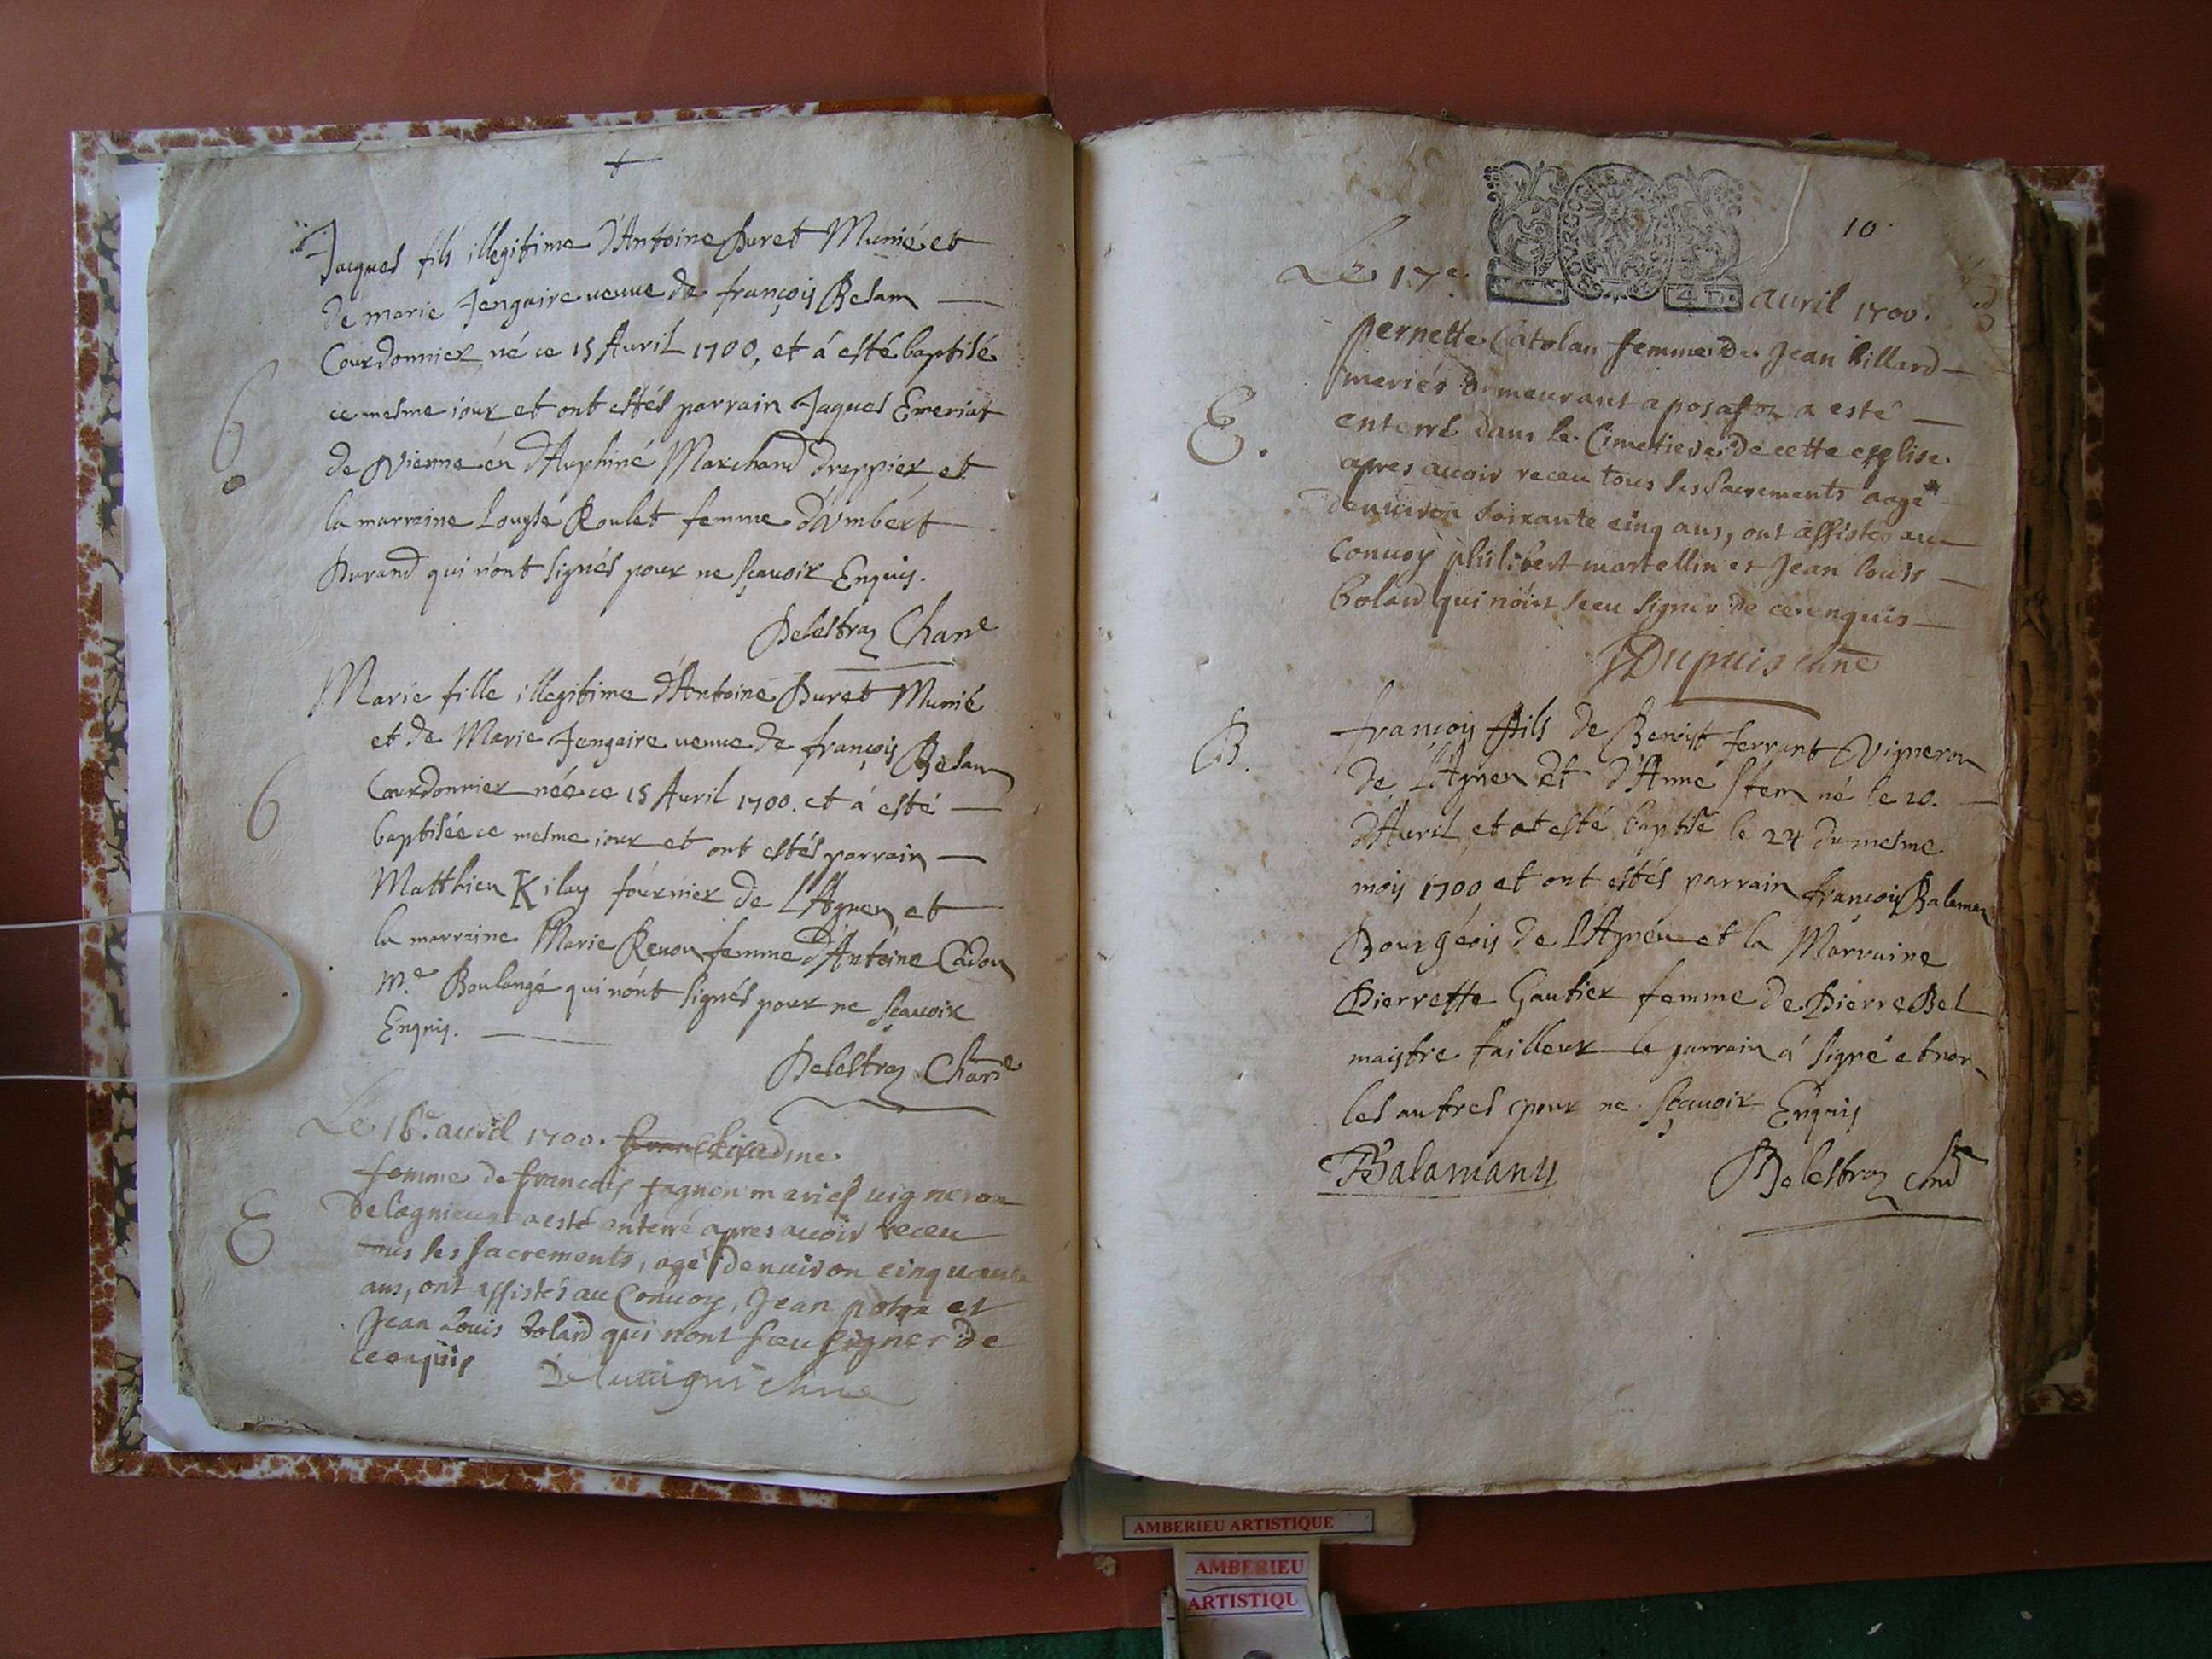 Jacques fils illegitime d'Antoine Buret Munié et
de marie Jengaire veuve de françois Belam
Courdonnier né ce 15 Auril 1700, et á esté baptisé
ce mesme iour et ont estés parrain Jaques Emeriat
de Vienne én dAuphiné Marchand drappier et
la marraine Louyse Roulet femme d'Vmbert
Durand qui n'ont signés pour ne sçauoir Enquis.
Delestraz Chane
Marie fille illegitime d'Antoine Buret Munié
et de Marie Jengaire veuve de françois Belam
Courdonnier née ce 15 Auril 1700. et á esté
baptisée ce mesme iour et ont estés parrain
Matthieu Kilay fournier de L'Agneu et
la marraine Marie Reuon femme d'Antoine Cadou
M.e Boulangé qui n'ont signés pour ne sçauoir
Enquis.
Delestraz Chane
Le 16.e auril 1700.
femme de francois fagnon mariés uigneron
de lagnieu a esté enterré apres auoir receu
tous les sacrements, agé denuiron cinquante
ans, ont assistés au Conuoy, Jean et
Jean Louis bolard qui nont sceu signer de
ce enquis
6
6
E
10.
Le 17e auril 1700.
pernette Catolan femme de Jean billard
mariés demeurant a posafol a esté
enterré dans le Cimetiere de cette esglise
apres auoir receu tous les sacrements aagé
denuiron soixante cinq ans, ont assistés au
Conuoy philibert martellin et Jean louis
bolard qui nont sceu signer de ce enquis
Dupuis chne
E.
françois fils de Benoist ferrant Vigneron
de L'Agneu et d'Anne Stem né le 20.
d'Auril et at esté baptisé le 24 du mesme
mois 1700 et ont estés parrain françois Balaman
Bourgeois de L'Agneu et la Marraine
Pierrette Gautier femme de Pierre Bel
maistre tailleur le parrain á signé et non
les autres pour ne sçauoir Enquis
Balamany Delestraz chne
B.
AMBERIEU ARTISTIQUE
AMBERIEU
ARTISTIQU